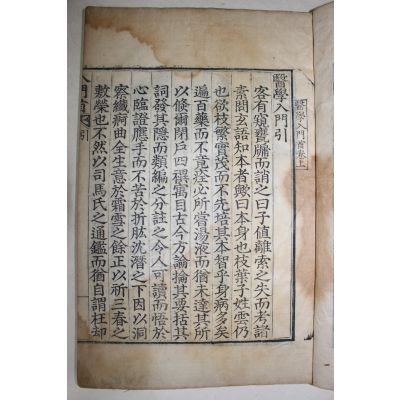 醫學入門首卷上
醫學入門引
客有窺甕牖而誚之曰子值離索之失而考諸
素問玄語知本者歟曰本身也枝葉子姓雲仍
也欲枝繁實茂而不先培其本智乎身病多矣
遍百藥而不竟痊心所嘗湯液而猶未達其所
以倏爾閉戶四禩寓目古今方論掄其要括其
詞發其隱而類編之分註之令人可讀而悟於
心臨證應手而不苦於折肱沈潛之下因以洞
察纖痾曲全生意於霜雪之餘正以祈三春之
敷榮也不然以司馬氏之通鑑而猶自謂枉却
入門首 引